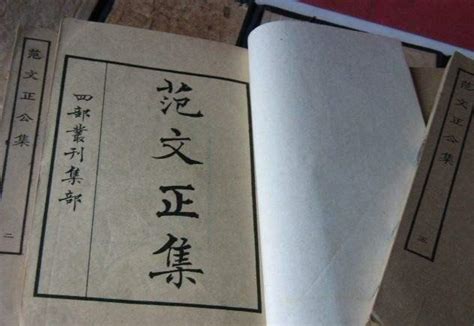 范文正集
四部叢刊集部
范文正公集
二
范文正公集
五